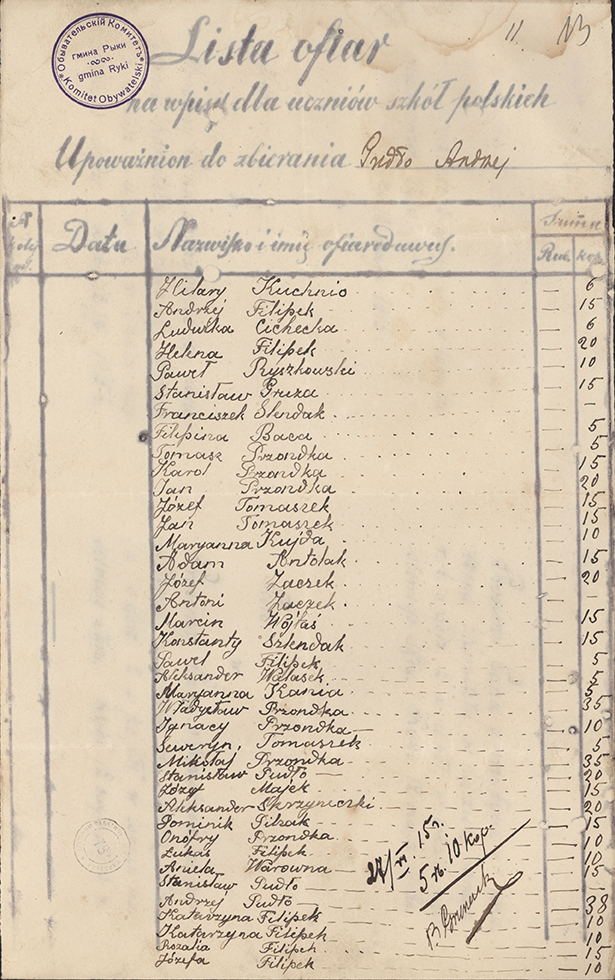 Обывательскiй Комитетъ
гмина Рыки
gmina Ryki
Komitet Obywatelski
11.
Lista ofiar
na wpisy dla uczniów szkół polskich
Upoważnion do zbierania Pudło Andrzej
Data Nazwisko i imię ofiarodawcy. Summa
Rub. kop.
Hilary Kuchnio — 6
Andrzej Filipek — 15
Ludwika Cichecka — 6
Helena Filipek — 20
Paweł Ryszkowski — 10
Stanisław Gruza — 15
Franciszek Slendak —
Filipina Baca 5
Tomasz Przondka 5
Karol Przondka 15
Jan Przondka 20
Józef Tomaszek 15
Jan Tomaszek 15
Maryanna Kujda 10
Adam Antolak 15
Józef Zaczek 20
Antoni Zaczek —
Marcin Wojtaś 15
Konstanty Szlendak 15
Paweł Filipek 5
Aleksander Wałasek 5
Maryanna Kania 5
Władysław Przondka 35
Ignacy Przondka 10
Seweryn, Tomaszek 5
Mikołaj Przondka 35
Stanisław Pudło 20
Józef Majek 15
Aleksander Skrzyneczki 20
Dominik 15
Onofry Przondka 10
Łukasz Filipek 10
Aniela Warowna 15
Stanisław Pudło —
Andrzej Pudło 38
Katarzyna Filipek 10
Katarzyna Filipek 10
Rozalia Filipek 15
Józefa Filipek 10
27/VI 15 r.
5 rb. 10 kop.